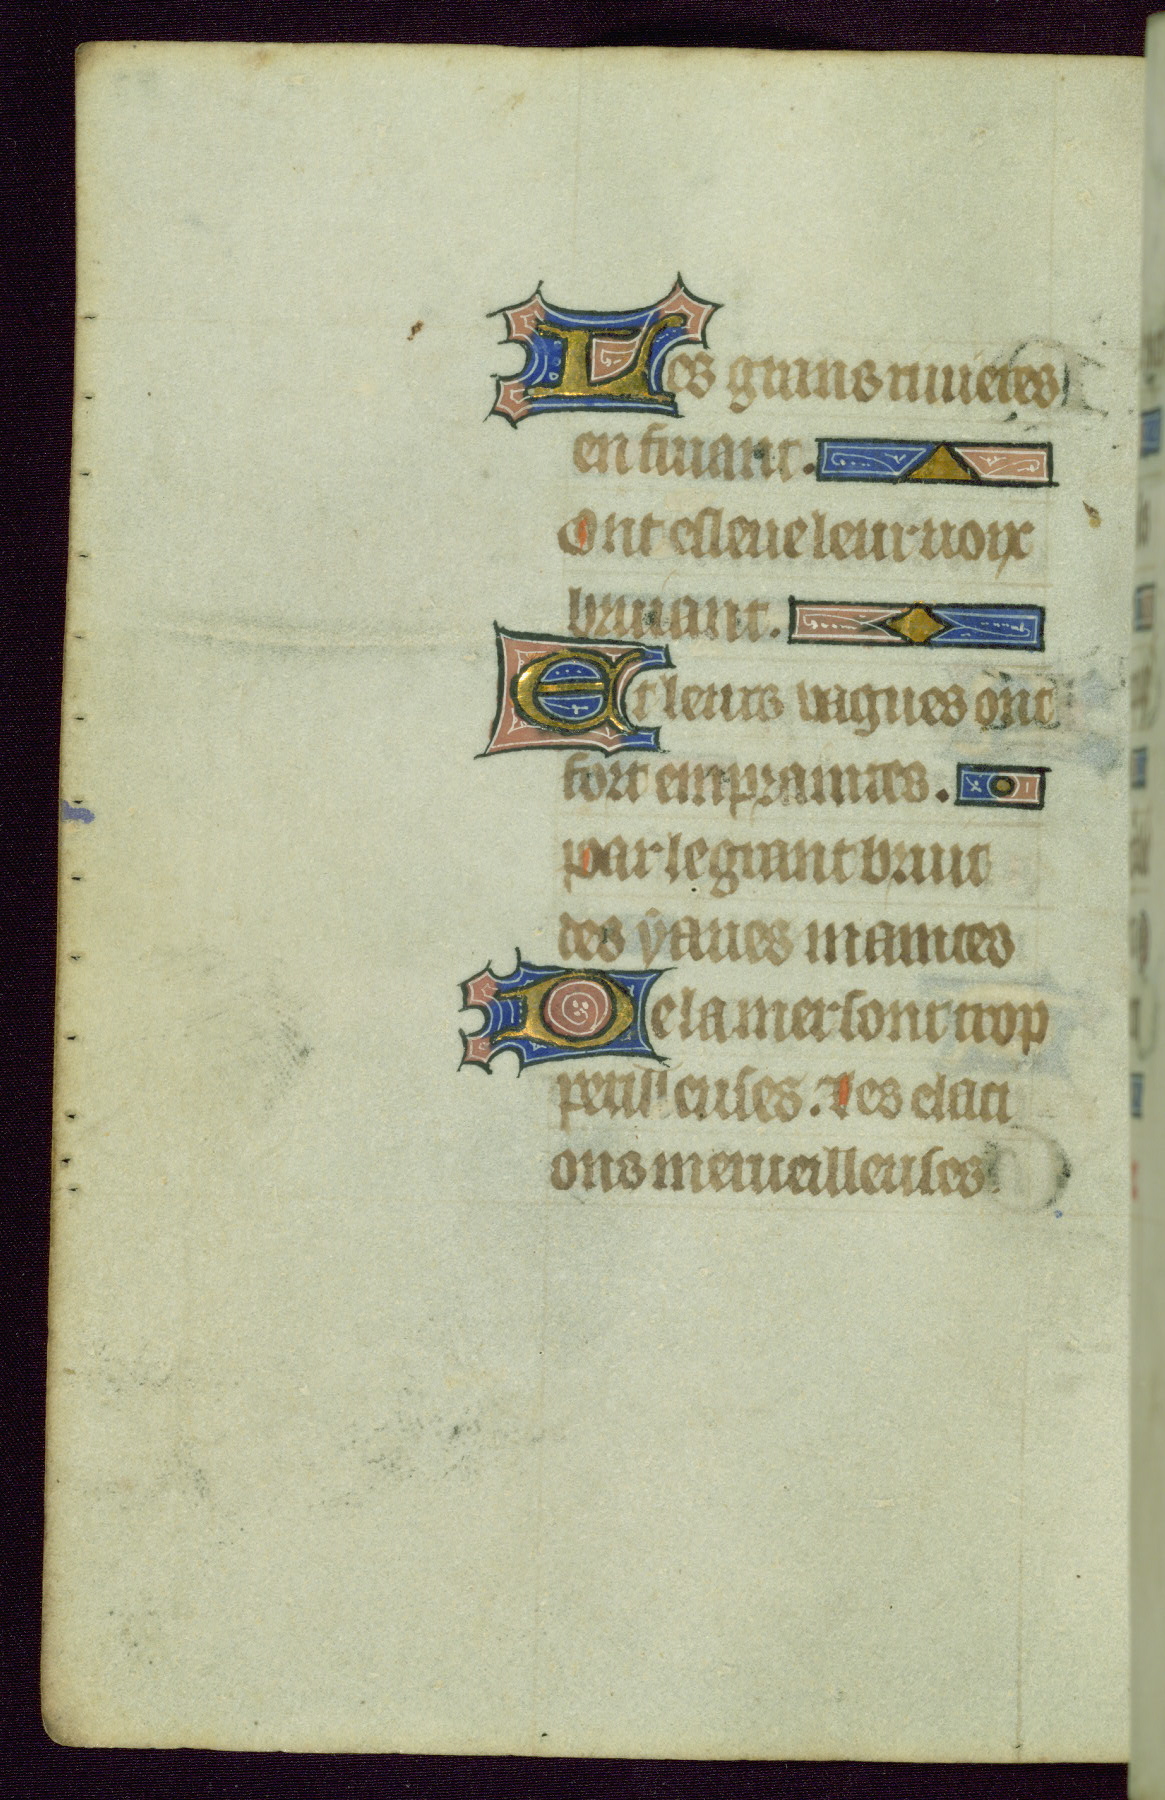 Les grans riuieres
en suiant.
Ont esleue leur uoix
bruiant.
Et leurs uagues ont
fort empraintes.
par le grant bruit
des yaues maintes
De la mer sont trop
perilleuses. Les elaci
ons merueilleuses